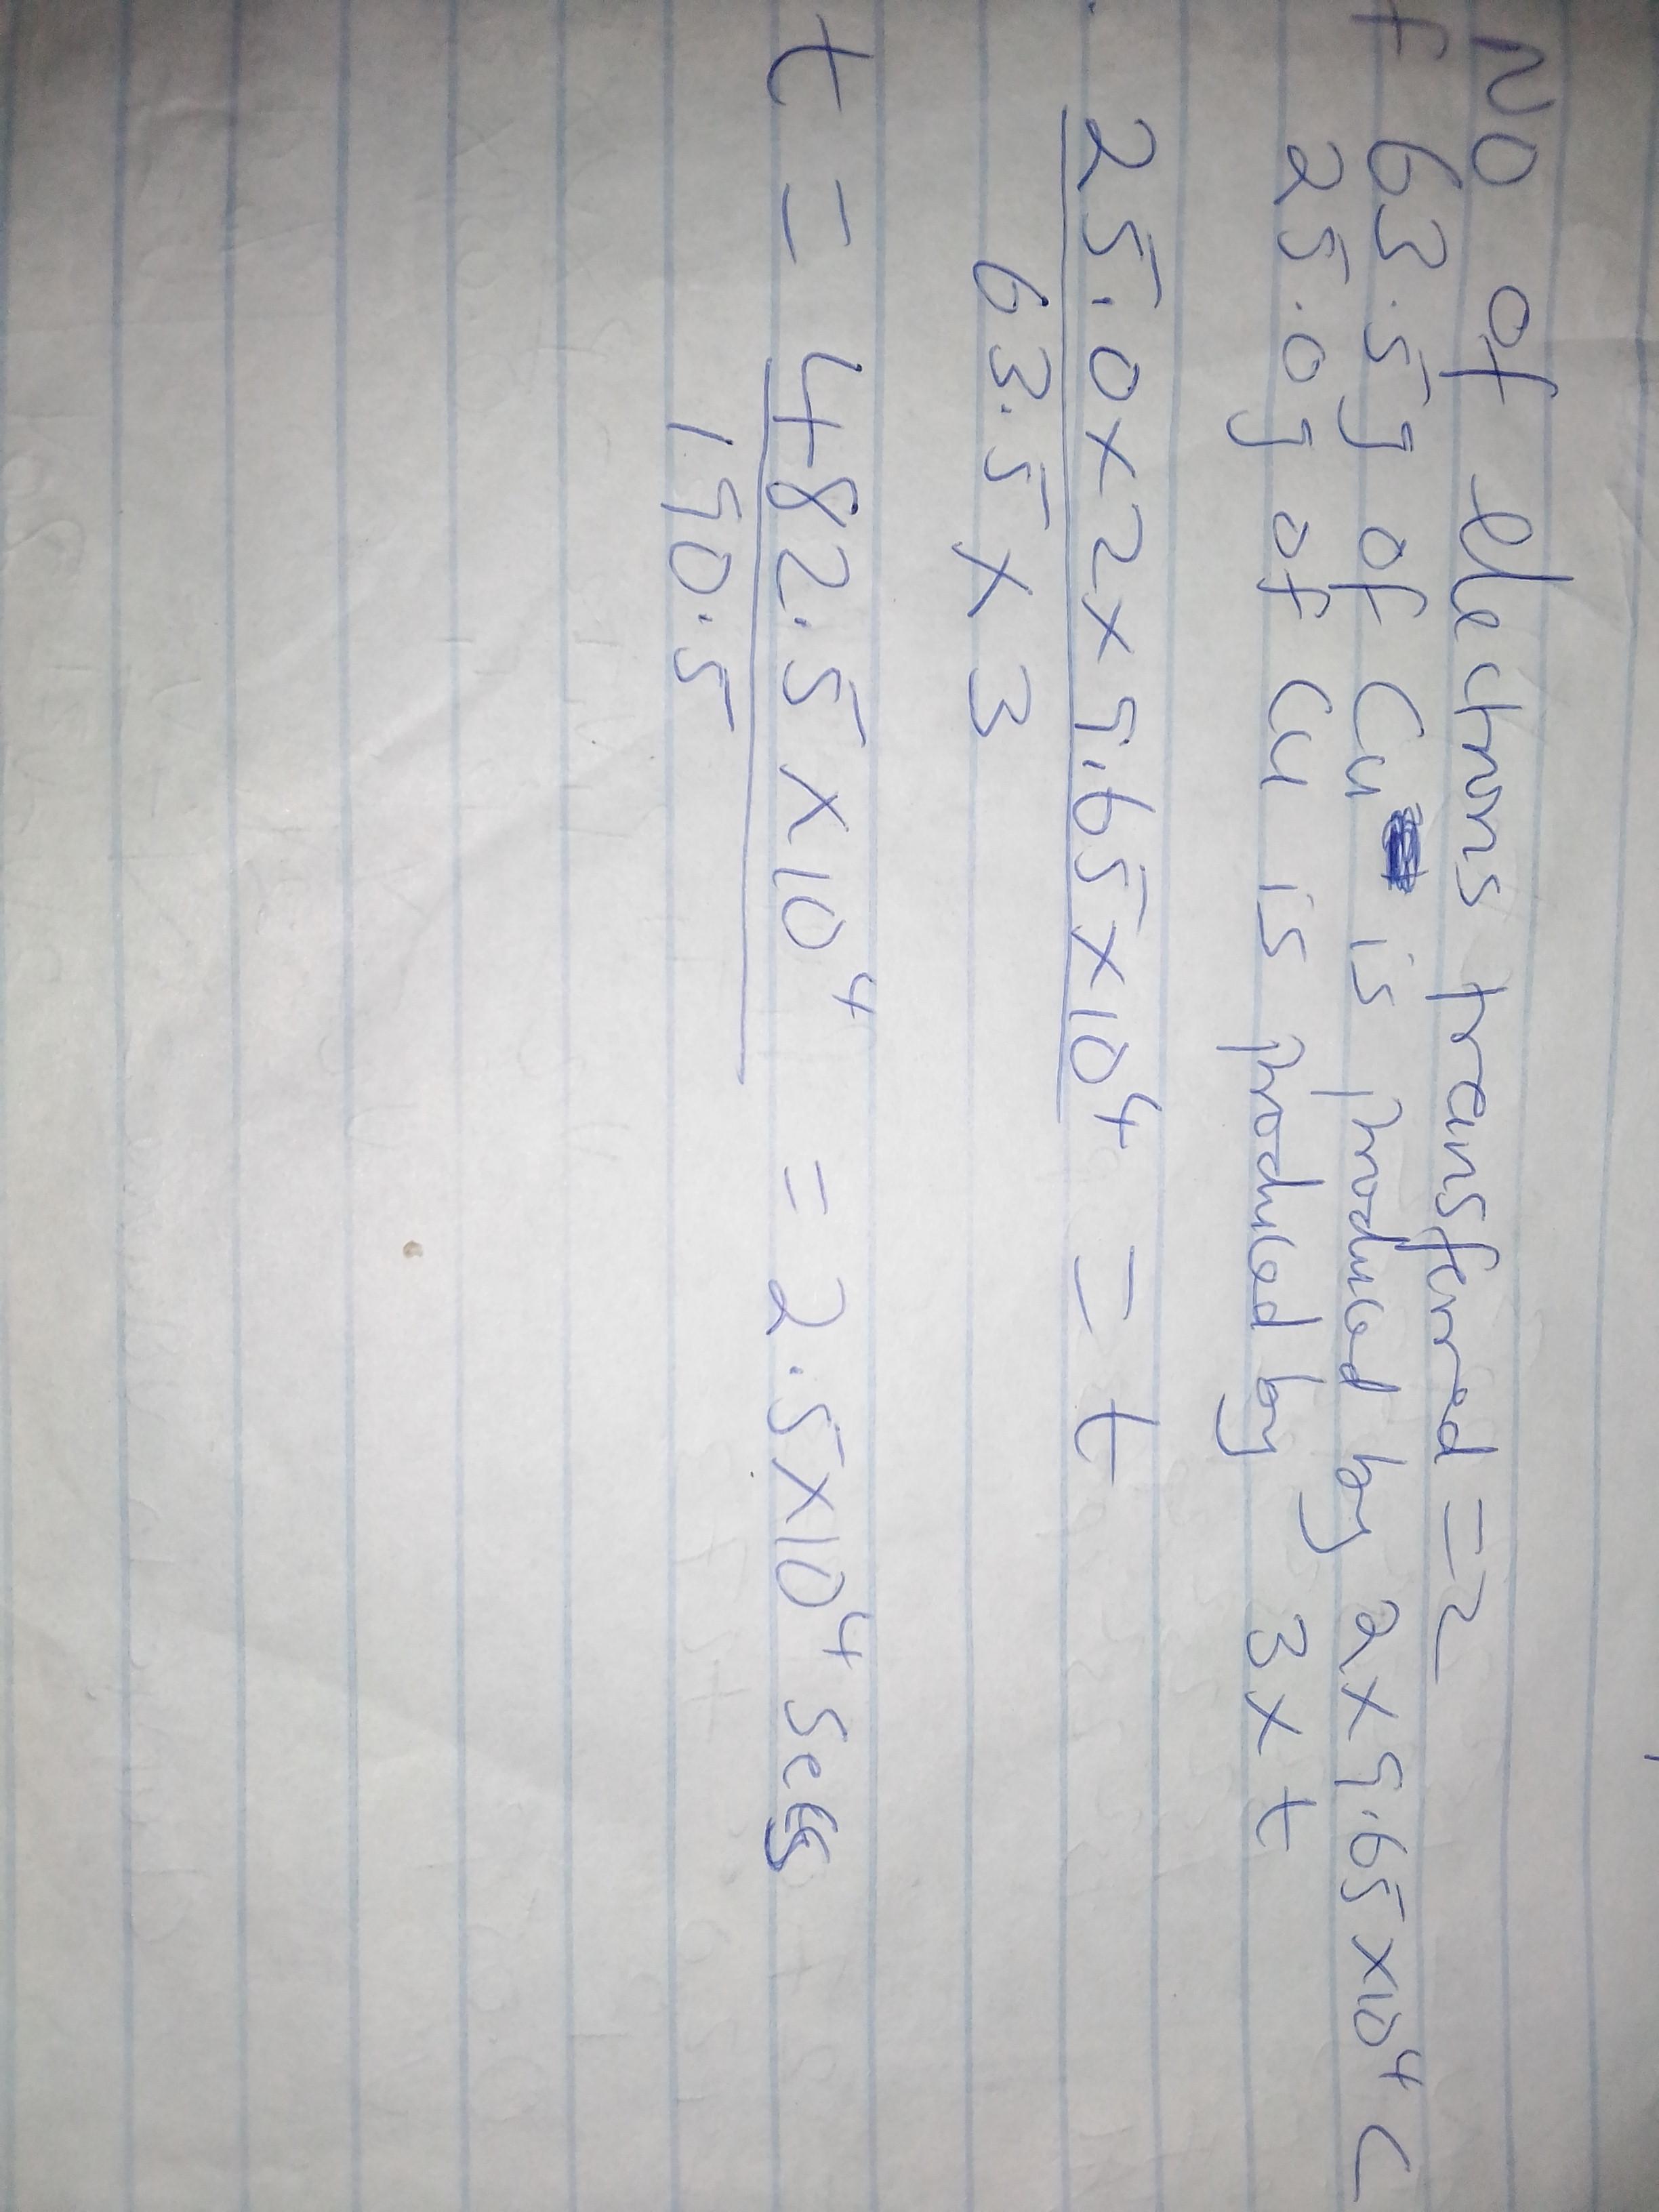 No of electrons transferred = 2
f 63.5g of Cu is produced by 2 x 9.65 x 10⁴ C
25.0g of Cu is produced by 3 x t
25.0 x 2 x 9.65 x 10⁴ = t
63.5 x 3
t = 482.5 x 10⁴ = 2.5 x 10⁴ secs
190.5